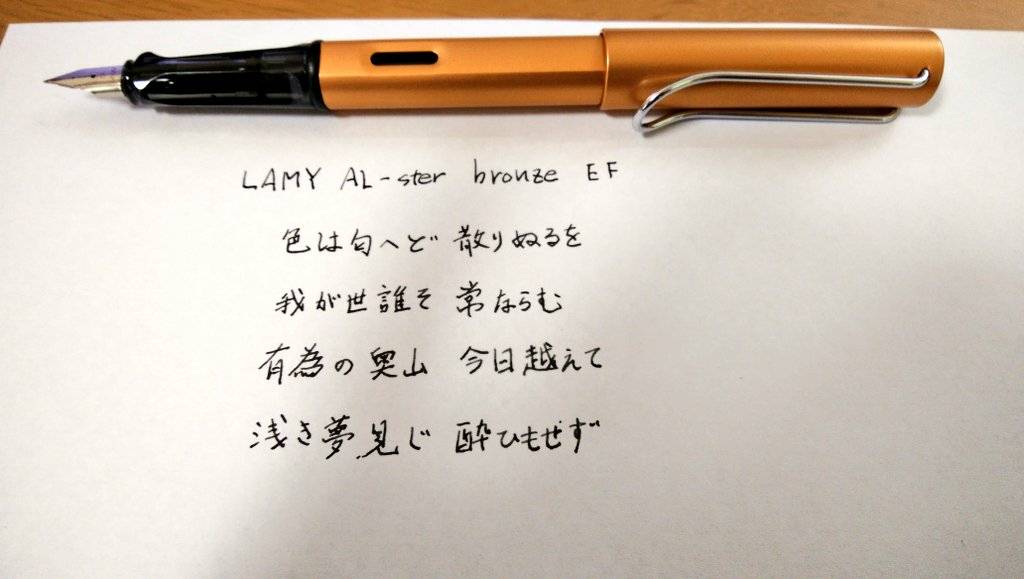 LAMY AL-ster bronze EF
色は匂へど 散りぬるを
我が世誰そ 常ならむ
有為の奥山 今日越えて
浅き夢見じ 酔ひもせず